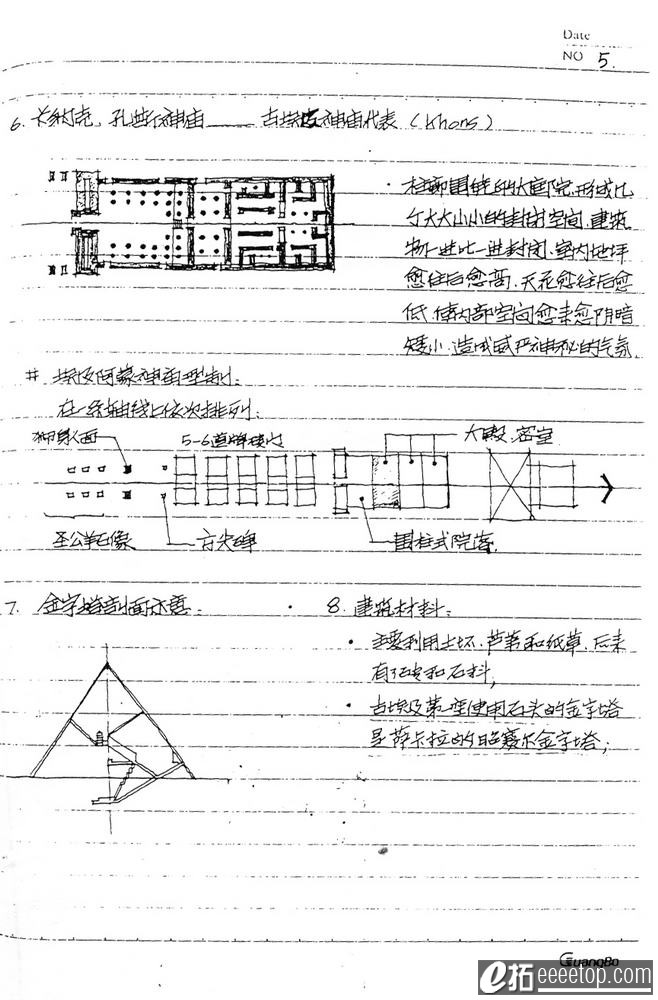 Date
NO 5.
6. 卡纳克，孔斯神庙 —— 古埃及神庙代表 (Khons)
· 柱廊围绕的大庭院,形成几
个大大小小的封闭空间.建筑
物一进比一进封闭.室内地坪
愈往后愈高.天花愈往后愈
低.使内部空间愈来愈阴暗
矮小.造成威严神秘的气氛
# 埃及阿蒙神庙型制:
在一条轴线上依次排列:
狮身人面
5-6道牌楼门
大殿.密室
圣公羊石像
方尖碑
围柱式院落
7. 金字塔剖面示意:
8. 建筑材料:
· 主要利用土坯.芦苇和纸草.后来
有了砖和石料;
· 古埃及第一座使用石头的金字塔
是萨卡拉的昭塞尔金字塔;
GuangBo
e拓 eeeetop.com